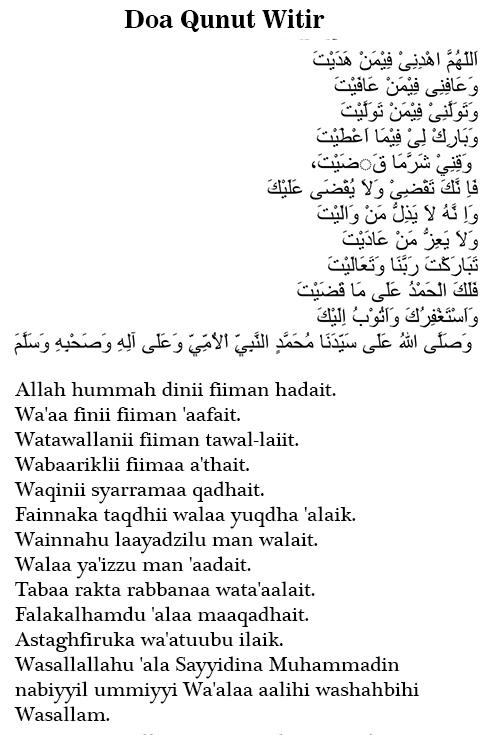 Doa Qunut Witir
اَللّٰهُمَّ اهْدِنِيْ فِيْمَنْ هَدَيْتَ
وَعَافِنِى فِيْمَنْ عَافَيْتَ
وَتَوَلَّنِيْ فِيْمَنْ تَوَلَّيْتَ
وَبَارِكْ لِيْ فِيْمَا اَعْطَيْتَ
وَقِنِيْ شَرَّمَا قَ◌َضَيْتَ،
فَاِ نَّكَ تَقْضِيْ وَلاَ يُقْضَى عَلَيْكَ
وَاِ نَّهُ لاَ يَذِلُّ مَنْ وَالَيْتَ
وَلاَ يَعِزُّ مَنْ عَادَيْتَ
تَبَارَكْتَ رَبَّنَا وَتَعَالَيْتَ
فَلَكَ الْحَمْدُ عَلَى مَا قَضَيْتَ
وَاَسْتَغْفِرُكَ وَاَتُوْبُ اِلَيْكَ
وَصَلَّى اللهُ عَلَى سَيِّدَنَا مُحَمَّدٍ النَّبِيِّ اْلاُمِّيِّ وَعَلَى آلِهِ وَصَحْبِهِ وَسَلَّمَ
Allah hummah dinii fiiman hadait.
Wa'aa finii fiiman 'aafait.
Watawallanii fiiman tawal-laiit.
Wabaariklii fiimaa a'thait.
Waqinii syarramaa qadhait.
Fainnaka taqdhii walaa yuqdha 'alaik.
Wainnahu laayadzilu man walait.
Walaa ya'izzu man 'aadait.
Tabaa rakta rabbanaa wata'aalait.
Falakalhamdu 'alaa maaqadhait.
Astaghfiruka wa'atuubu ilaik.
Wasallallahu 'ala Sayyidina Muhammadin
nabiyyil ummiyyi Wa'alaa aalihi washahbihi
Wasallam.